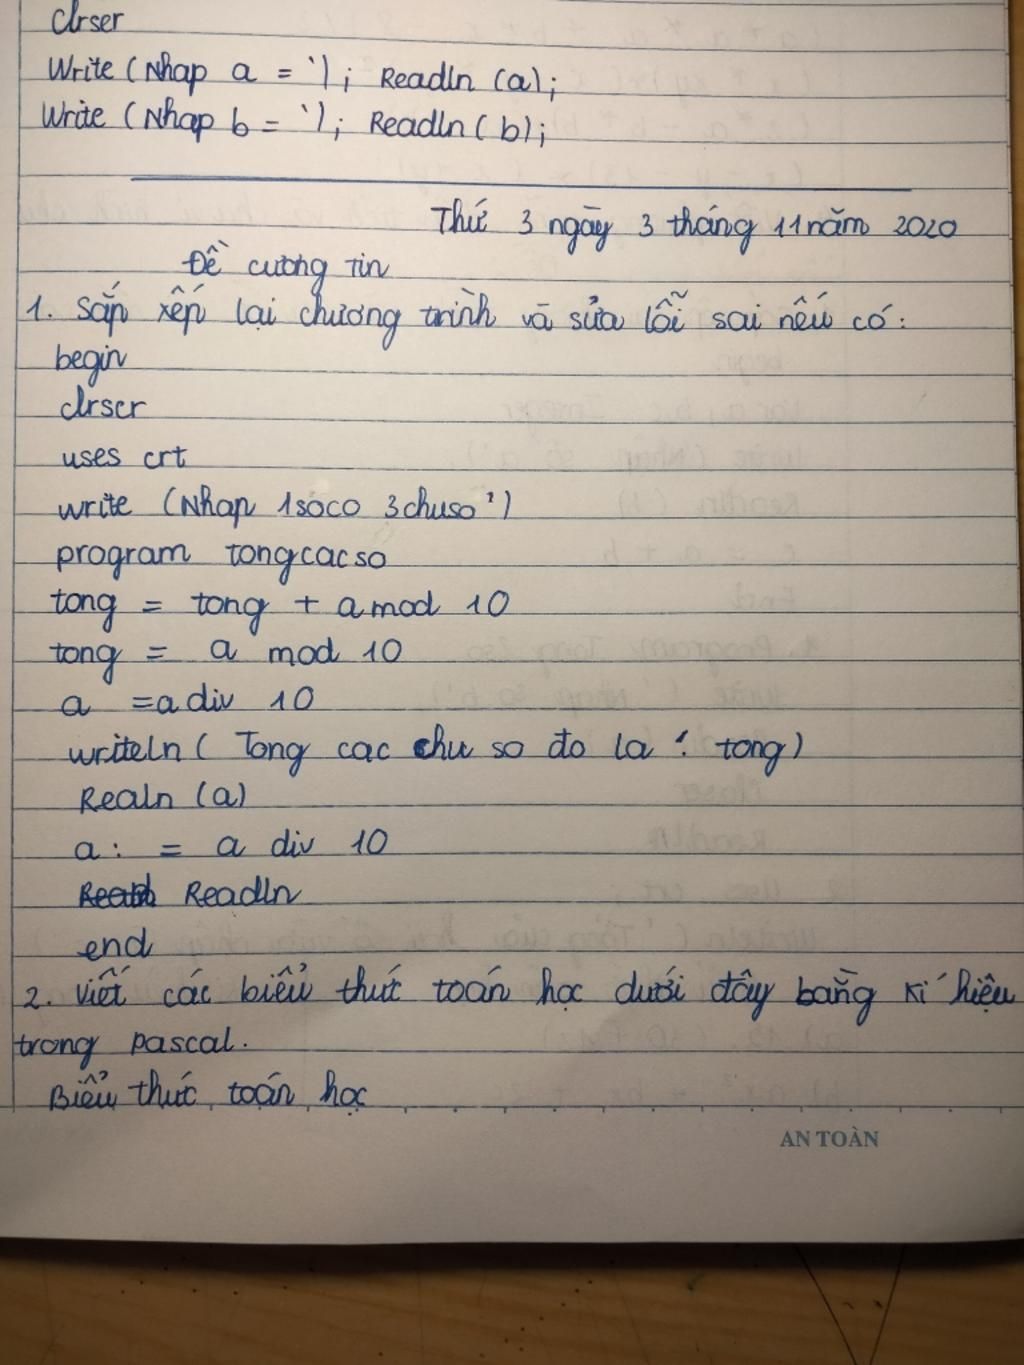 clrser
Write (Nhap a = '); Readln (a);
Write (Nhap b = '); Readln (b);
Thứ 3 ngày 3 tháng 11 năm 2020
Đề cương Tin
1. Sắp xếp lại chương trình và sửa lỗi sai nếu có:
begin
clrscr
uses crt
write (Nhap 1soco 3chuso')
program tongcacso
tong = tong + a mod 10
tong = a mod 10
a = a div 10
writeln ( Tong cac chu so đo la ' tong)
Realn (a)
a: = a div 10
Readln
end
2. Viết các biểu thức toán học dưới đây bằng kí hiệu
trong pascal.
Biểu thức toán học
AN TOÀN